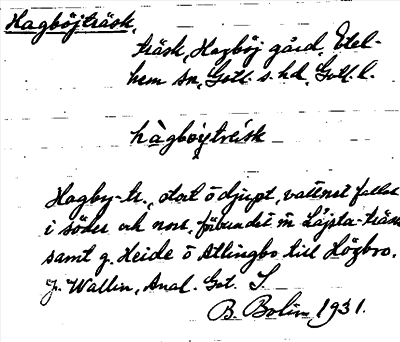 Hagböjträsk,
träsk, Hagböj gård, Etel-
hem sn, Gotl. s. hd, Gotl. l.
hàgbǫytrésk
Hagby-tr., stort o djupt, vattnet faller
i söder och norr, förbundet m Låjsta-träsk
samt g. Heide o Allingbo till Högbro.
J. Wallin, Anal. Got. I.
B. Bolin, 1931.